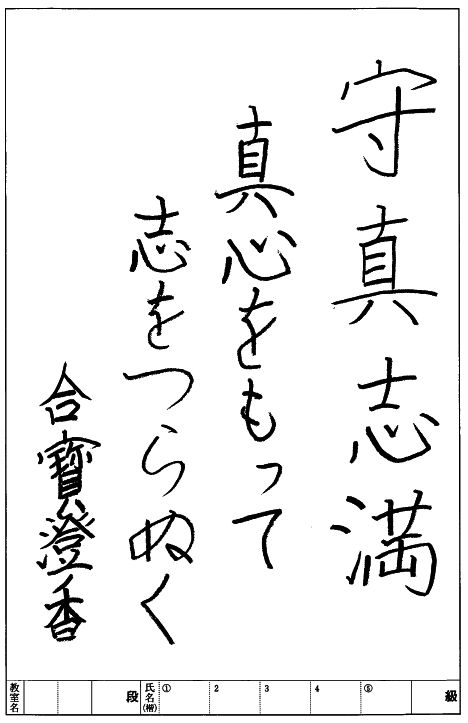 守真志満
真心をもって
志をつらぬく
合寳澄香
教室名 段 氏名(楷) ① 2 3 4 ⑤ 級